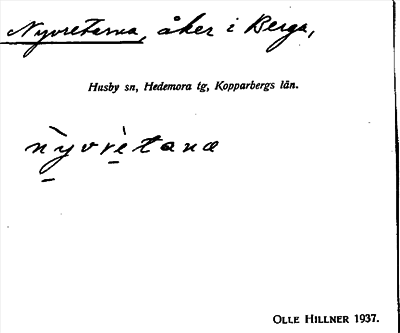 Nyvretarna, åker i Berga,
Husby sn, Hedemora tg, Kopparbergs län.
nỳvrètanæ
OLLE HILLNER 1937.